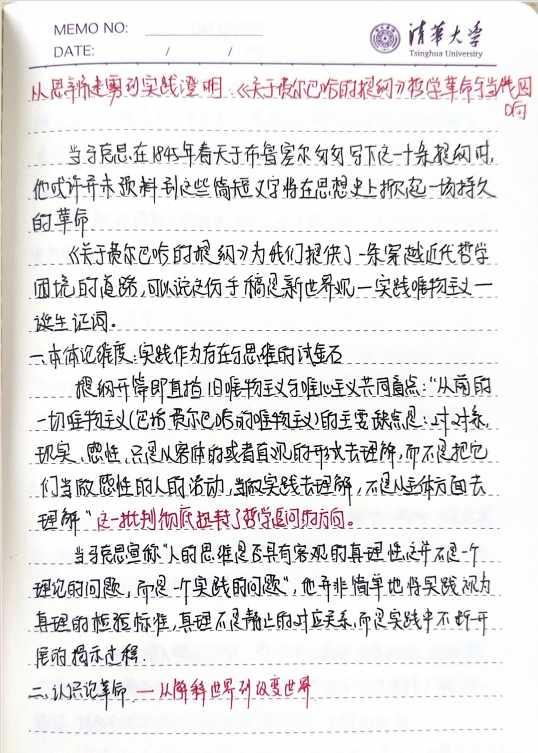 MEMO NO:
DATE: / /
清华大学
Tsinghua University
从思辨走勇到实践澄明《关于费尔巴哈的提纲》哲学革命与当代回
响
当马克思在1845年春天于布鲁塞尔匆匆写下这十一条提纲时,
他或许并未预料到这些简短文字将在思想史上掀起一场持久
的革命
《关于费尔巴哈的提纲》为我们提供了一条穿越近代哲学
困境的道路,可以说这份手稿是新世界观—实践唯物主义—
诞生证词。
一.本体论维度:实践作为存在与思维的试金石
提纲开篇即直指旧唯物主义与唯心主义共同盲点:“从前的
一切唯物主义(包括费尔巴哈的唯物主义)的主要缺点是:对对象、
现实、感性、只是从客体的或者直观的形式去理解,而不是把它
们当做感性的人的活动,当做实践去理解,不是从主体方面去
理解”这一批判彻底扭转了哲学追问的方向。
当马克思宣称“人的思维是否具有客观的真理性,这并不是一个
理论的问题,而是一个实践的问题”,他并非简单地将实践视为
真理的检验标准,真理不是静止的对应关系,而是实践中不断开
展的揭示过程.
二.认识论革命—从解释世界到改变世界